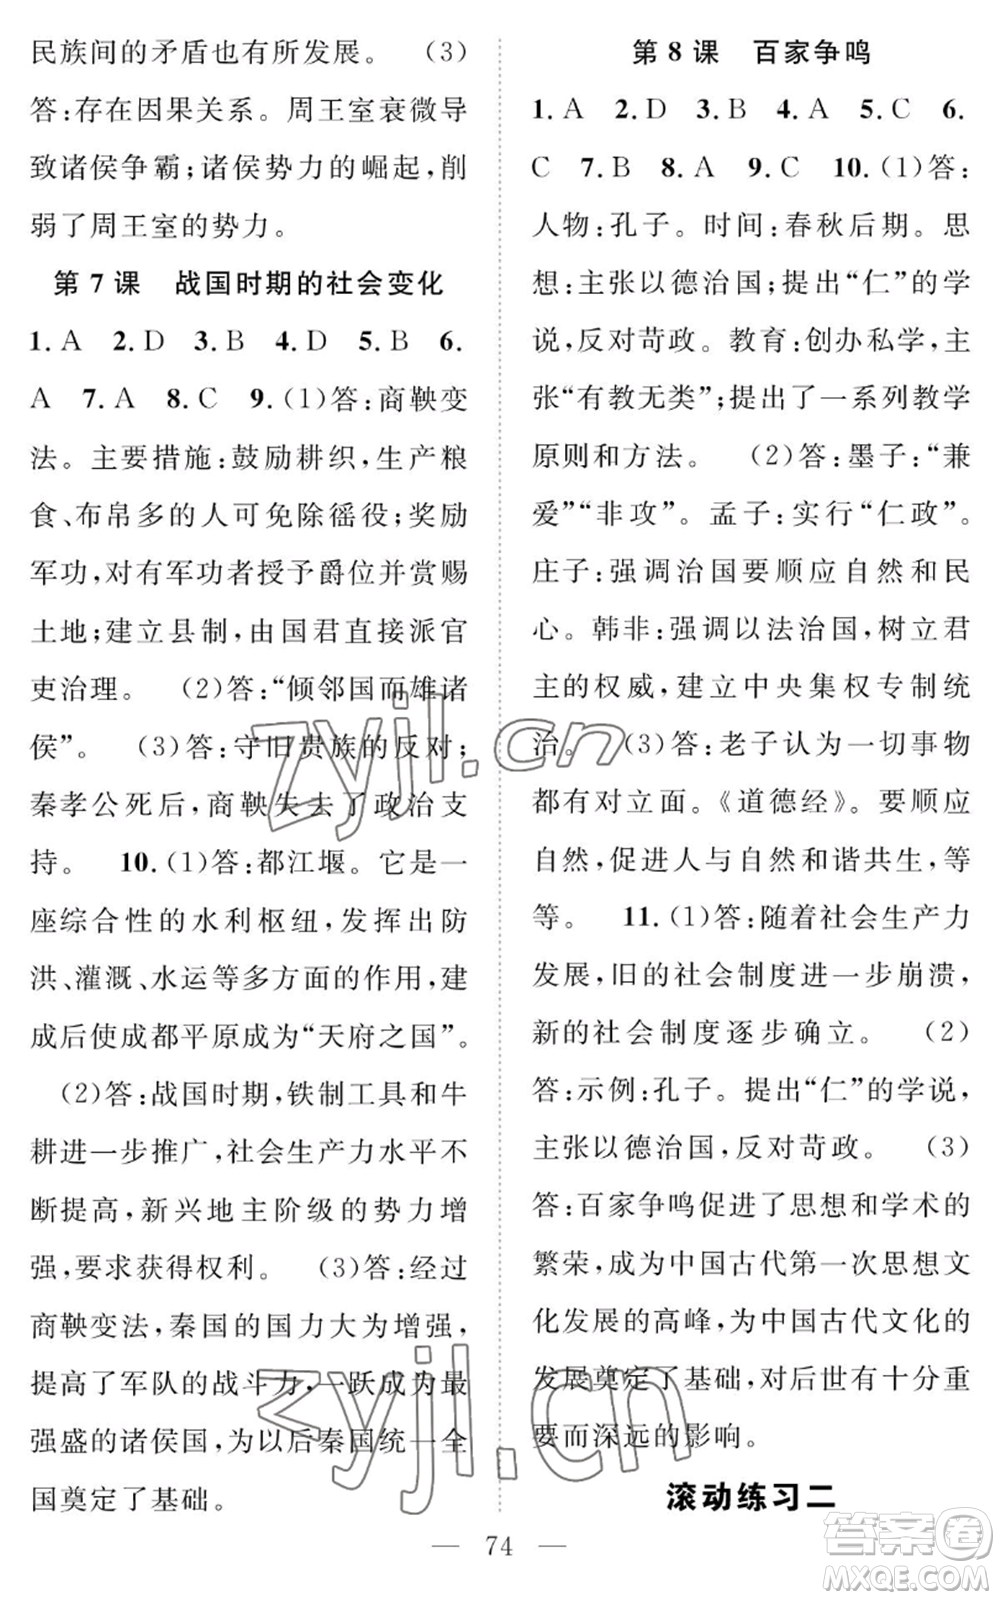 民族间的矛盾也有所发展。 (3)
答:存在因果关系。周王室衰微导
致诸侯争霸;诸侯势力的崛起,削
弱了周王室的势力。
第 7 课 战国时期的社会变化
1. A 2. D 3. B 4. D 5. B 6.
A 7. A 8. C 9. (1)答:商鞅变
法。主要措施:鼓励耕织,生产粮
食、布帛多的人可免除徭役;奖励
军功,对有军功者授予爵位并赏赐
土地;建立县制,由国君直接派官
吏治理。 (2)答:“倾邻国而雄诸
侯”。 (3)答:守旧贵族的反对;
秦孝公死后,商鞅失去了政治支
持。 10. (1)答:都江堰。它是一
座综合性的水利枢纽,发挥出防
洪、灌溉、水运等多方面的作用,建
成后使成都平原成为“天府之国”。
(2)答:战国时期,铁制工具和牛
耕进一步推广,社会生产力水平不
断提高,新兴地主阶级的势力增
强,要求获得权利。 (3)答:经过
商鞅变法,秦国的国力大为增强,
提高了军队的战斗力,一跃成为最
强盛的诸侯国,为以后秦国统一全
国奠定了基础。
第 8 课 百家争鸣
1. A 2. D 3. B 4. A 5. C 6.
C 7. B 8. A 9. C 10. (1)答:
人物:孔子。时间:春秋后期。思
想:主张以德治国;提出“仁”的学
说,反对苛政。教育:创办私学,主
张“有教无类”;提出了一系列教学
原则和方法。 (2)答:墨子:“兼
爱”“非攻”。孟子:实行“仁政”。
庄子:强调治国要顺应自然和民
心。韩非:强调以法治国,树立君
主的权威,建立中央集权专制统
治。 (3)答:老子认为一切事物
都有对立面。《道德经》。要顺应
自然,促进人与自然和谐共生,等
等。 11. (1)答:随着社会生产力
发展,旧的社会制度进一步崩溃,
新的社会制度逐步确立。 (2)
答:示例:孔子。提出“仁”的学说,
主张以德治国,反对苛政。 (3)
答:百家争鸣促进了思想和学术的
繁荣,成为中国古代第一次思想文
化发展的高峰,为中国古代文化的
发展奠定了基础,对后世有十分重
要而深远的影响。
滚动练习二
— 74 —
zyjl.cn
zyjl.cn
答案卷
MXQE.COM